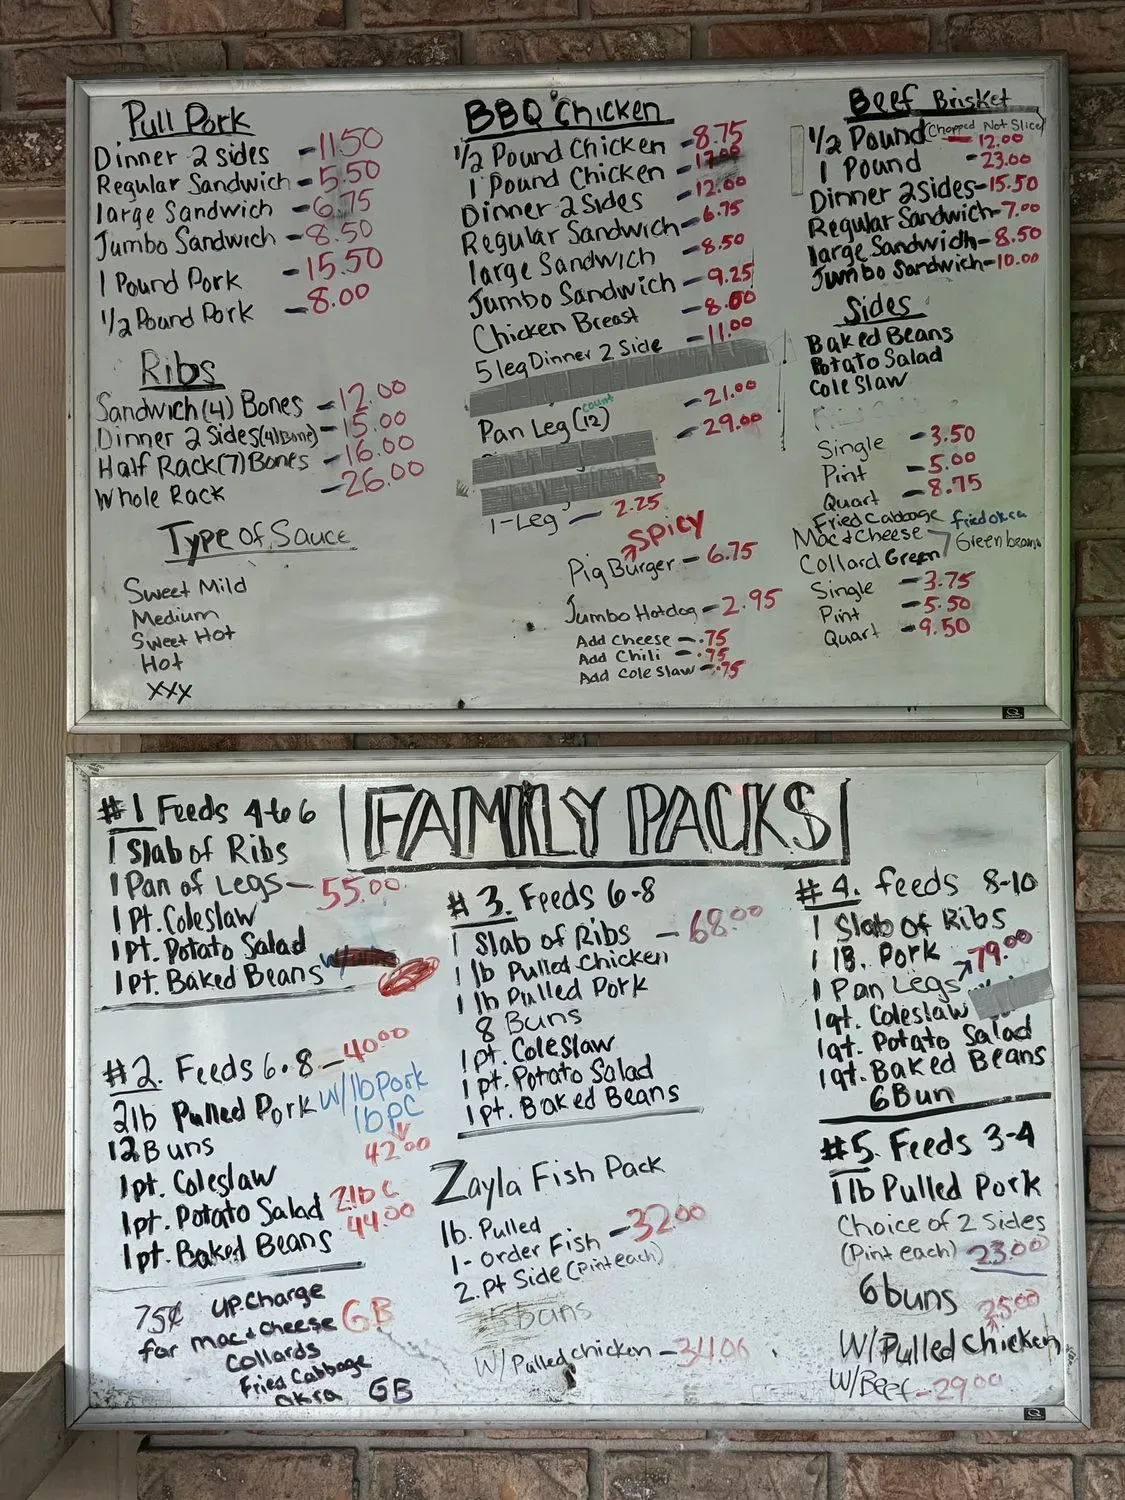 Pull Pork
Dinner 2 sides - 11.50
Regular Sandwich - 5.50
large Sandwich - 6.75
Jumbo Sandwich - 8.50
1 Pound Pork - 15.50
1/2 Pound Pork - 8.00
Ribs
Sandwich (4) Bones - 12.00
Dinner 2 Sides (4) Bone) - 15.00
Half Rack (7) Bones - 16.00
Whole Rack - 26.00
Type of Sauce
Sweet Mild
Medium
Sweet Hot
Hot
XXX
BBQ Chicken
1/2 Pound Chicken - 8.75
1 Pound Chicken - 17.00
Dinner 2 Sides - 12.00
Regular Sandwich - 6.75
large Sandwich - 8.50
Jumbo Sandwich - 9.25
Chicken Breast - 8.00
5 leg Dinner 2 Side - 11.00
- 21.00
Pan Leg (12) count - 29.00
1-Leg - 2.25
Spicy
Pig Burger - 6.75
Jumbo Hotdog - 2.95
Add Cheese - .75
Add Chili - .75
Add Cole Slaw - .75
Beef Brisket
1/2 Pound (Chopped Not Slice) - 12.00
1 Pound - 23.00
Dinner 2 Sides - 15.50
Regular Sandwich - 7.00
large Sandwich - 8.50
Jumbo Sandwich - 10.00
Sides
Baked Beans
Potato Salad
Cole Slaw
Single - 3.50
Pint - 5.00
Quart - 8.75
Fried Cabbage fried okra
Mac & Cheese Green beans
Collard Green
Single - 3.75
Pint - 5.50
Quart - 9.50
FAMILY PACKS
#1 Feeds 4 to 6
1 Slab of Ribs
1 Pan of Legs - 55.00
1 Pt. Coleslaw
1 Pt. Potato Salad
1 pt. Baked Beans w/
#2. Feeds 6-8 - 40.00
2 lb Pulled Pork W/ lb Pork
lb PC
12 Buns 42.00
1 pt. Coleslaw
1 pt. Potato Salad 2 lb C
1 pt. Baked Beans 44.00
75¢ up.charge
for mac & cheese GB
Collards
Fried Cabbage
Okra GB
#3. Feeds 6-8
1 Slab of Ribs - 68.00
1 lb Pulled Chicken
1 lb Pulled Pork
8 Buns
1 pt. Coleslaw
1 pt. Potato Salad
1 pt. Baked Beans
Zayla Fish Pack
1 lb. Pulled
1- order Fish - 32.00
2. pt Side (Pint each)
6 buns
W/ Pulled Chicken - 34.00
#4. feeds 8-10
1 Slab of Ribs
1 lB. Pork 79.00
1 Pan Legs
1 qt. Coleslaw
1 qt. Potato Salad
1 qt. Baked Beans
6 Bun
#5. Feeds 3-4
1 lb Pulled Pork
Choice of 2 Sides
(Pint each) 23.00
6 buns 25.00
W/ Pulled Chicken
W/ Beef - 29.00